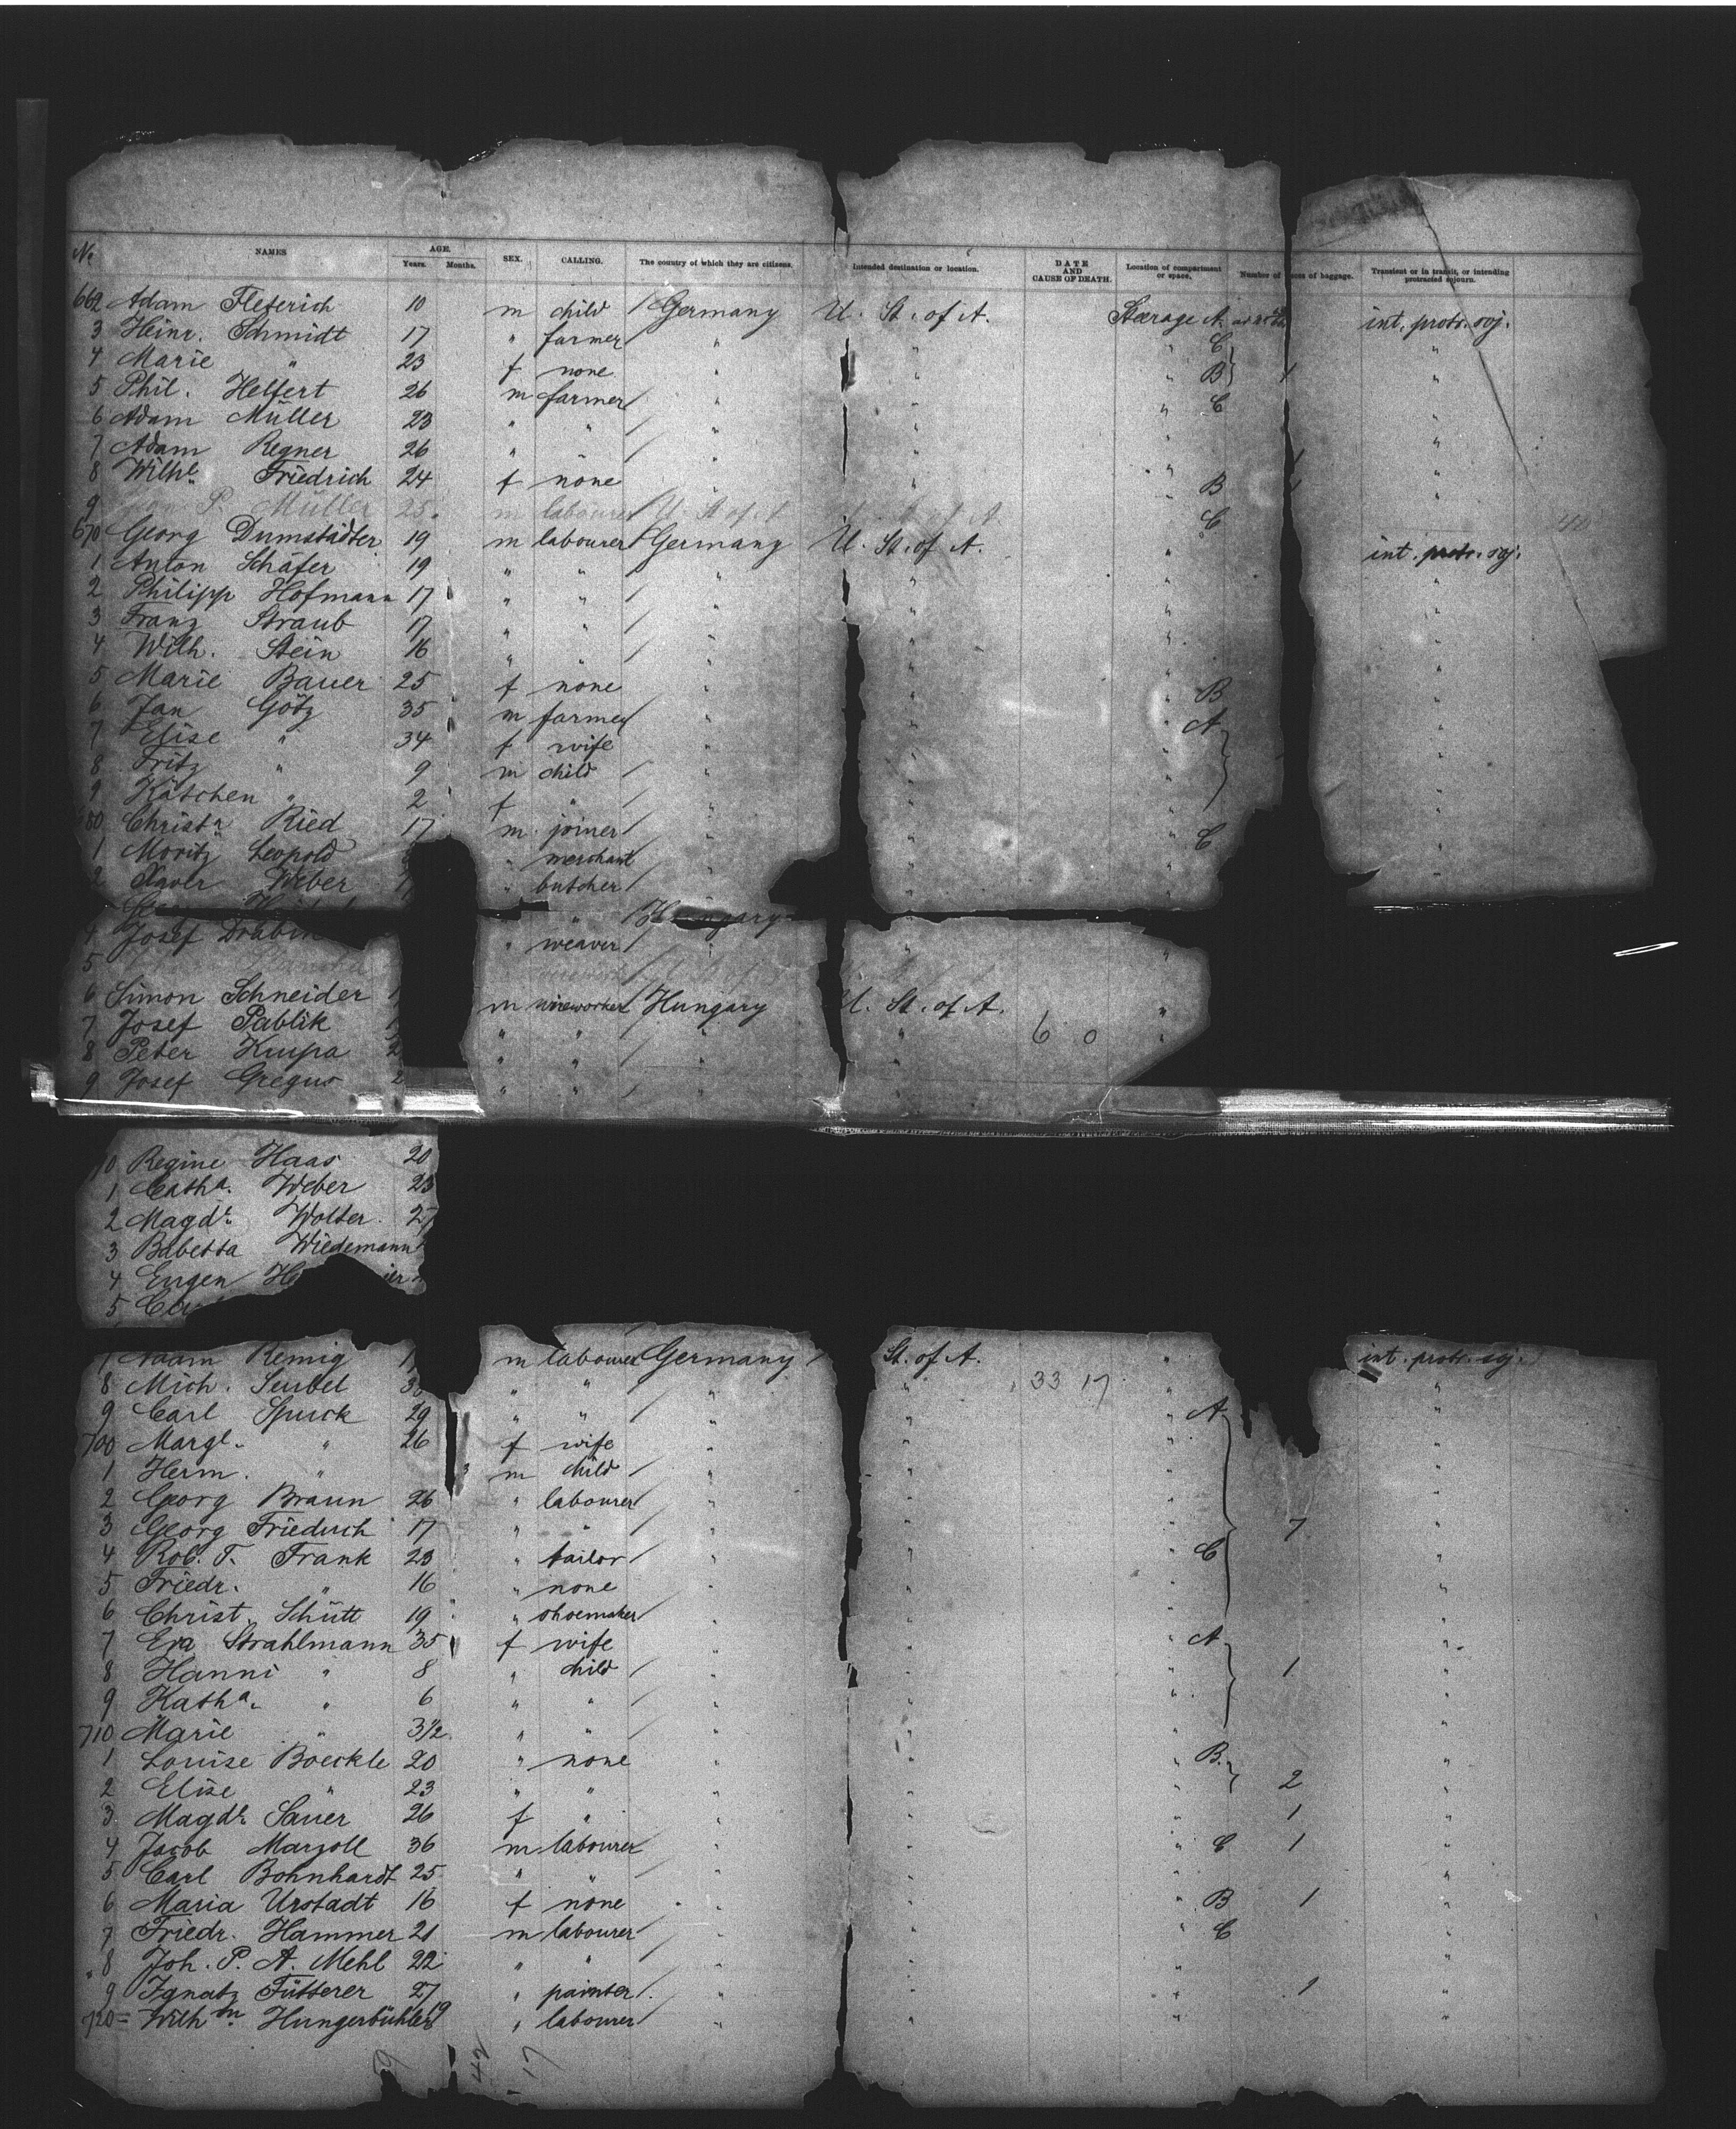 No. NAMES AGE. Years. Months. SEX. CALLING. The country of which they are citizens. Intended destination or location. DATE AND CAUSE OF DEATH. Location of compartment or space. Number of pieces of baggage. Transient or in transit, or intending protracted sojourn.
662 Adam 10 m child Germany U. St. of A. Steerage A. int. protr. soj.
3 Heinr. Schmidt 17 " farmer " " " C "
4 Marie " 23 f none " " " B 1 "
5 Phil. Helfert 26 m farmer " " " C "
6 Adam Müller 23 " " " " " "
7 Adam Regner 26 " " " " " 1 "
8 Wilhe. Friedrich 24 f none " " " B 1 "
9 P. Müller 25 m labourer U. St. of A. C 40
670 Georg Dumstädter 19 m labourer Germany U. St. of A. " int. protr. soj.
1 Anton Schäfer 19 " " " " " "
2 Philipp Hofmann 17 " " " " " "
3 Franz Straub 17 " " " " " "
4 Wilh. Stein 16 " " " " " "
5 Marie Bauer 25 f none " " " B "
6 Jan Götz 35 m farmer " " " A "
7 Elise " 34 f wife " " " "
8 Fritz " 9 m child " " " "
9 Kätchen " 2 f " " " " "
680 Christn Ried 17 m joiner " " " C "
1 Moritz Leopold " merchant " " " "
2 Xaver Weber " butcher " " "
" Hungary
4 Josef " weaver " " "
5
6 Simon Schneider m wireworker Hungary U. St. of A. "
7 Josef Pablik " " " " 6 0 "
8 Peter Krupa 2 " " " "
9 Josef Gregus 2 " " " "
Regine Haas 20
1 Catha. Weber 23
2 Magde. Wolter 27
3 Babetta Wiedemann
4 Eugen
5
Adam Remig m labourer Germany St. of A. " int. protr. soj.
8 Mich. Seubel 3 " " " " 33 17 " "
9 Carl Spuck 29 " " " " " A "
700 Margt. " 26 f wife " " " "
1 Herm. " 3 m child " " " "
2 Georg Braun 26 " labourer " " " "
3 Georg Friedrich 17 " " " " " 7 "
4 Rob. T. Frank 23 " tailor " " " C "
5 Friedr. " 16 " none " " " "
6 Christ. Schütt 19 " shoemaker " " " "
7 Eva Strahlmann 35 f wife " " " A "
8 Hanni " 8 " child " " " 1 "
9 Katha. " 6 " " " " " "
710 Marie " 3½ " " " " " "
1 Louise Boeckle 20 " none " " " B "
2 Elise " 23 " " " " " 2 "
3 Magde. Sauer 26 f " " " " 1 "
4 Jacob Marzoll 36 m labourer " " " C 1 "
5 Carl Bohnhardt 25 " " " " " "
6 Maria Urstadt 16 f none " " " B 1 "
7 Friedr. Hammer 21 m labourer " " " C "
8 Joh. P. A. Mehl 22 " " " " " "
9 Ignatz Fütterer 27 " painter " " " 1 "
720 Wilhm. Hungerbühler 19 " labourer " " " "
42 17